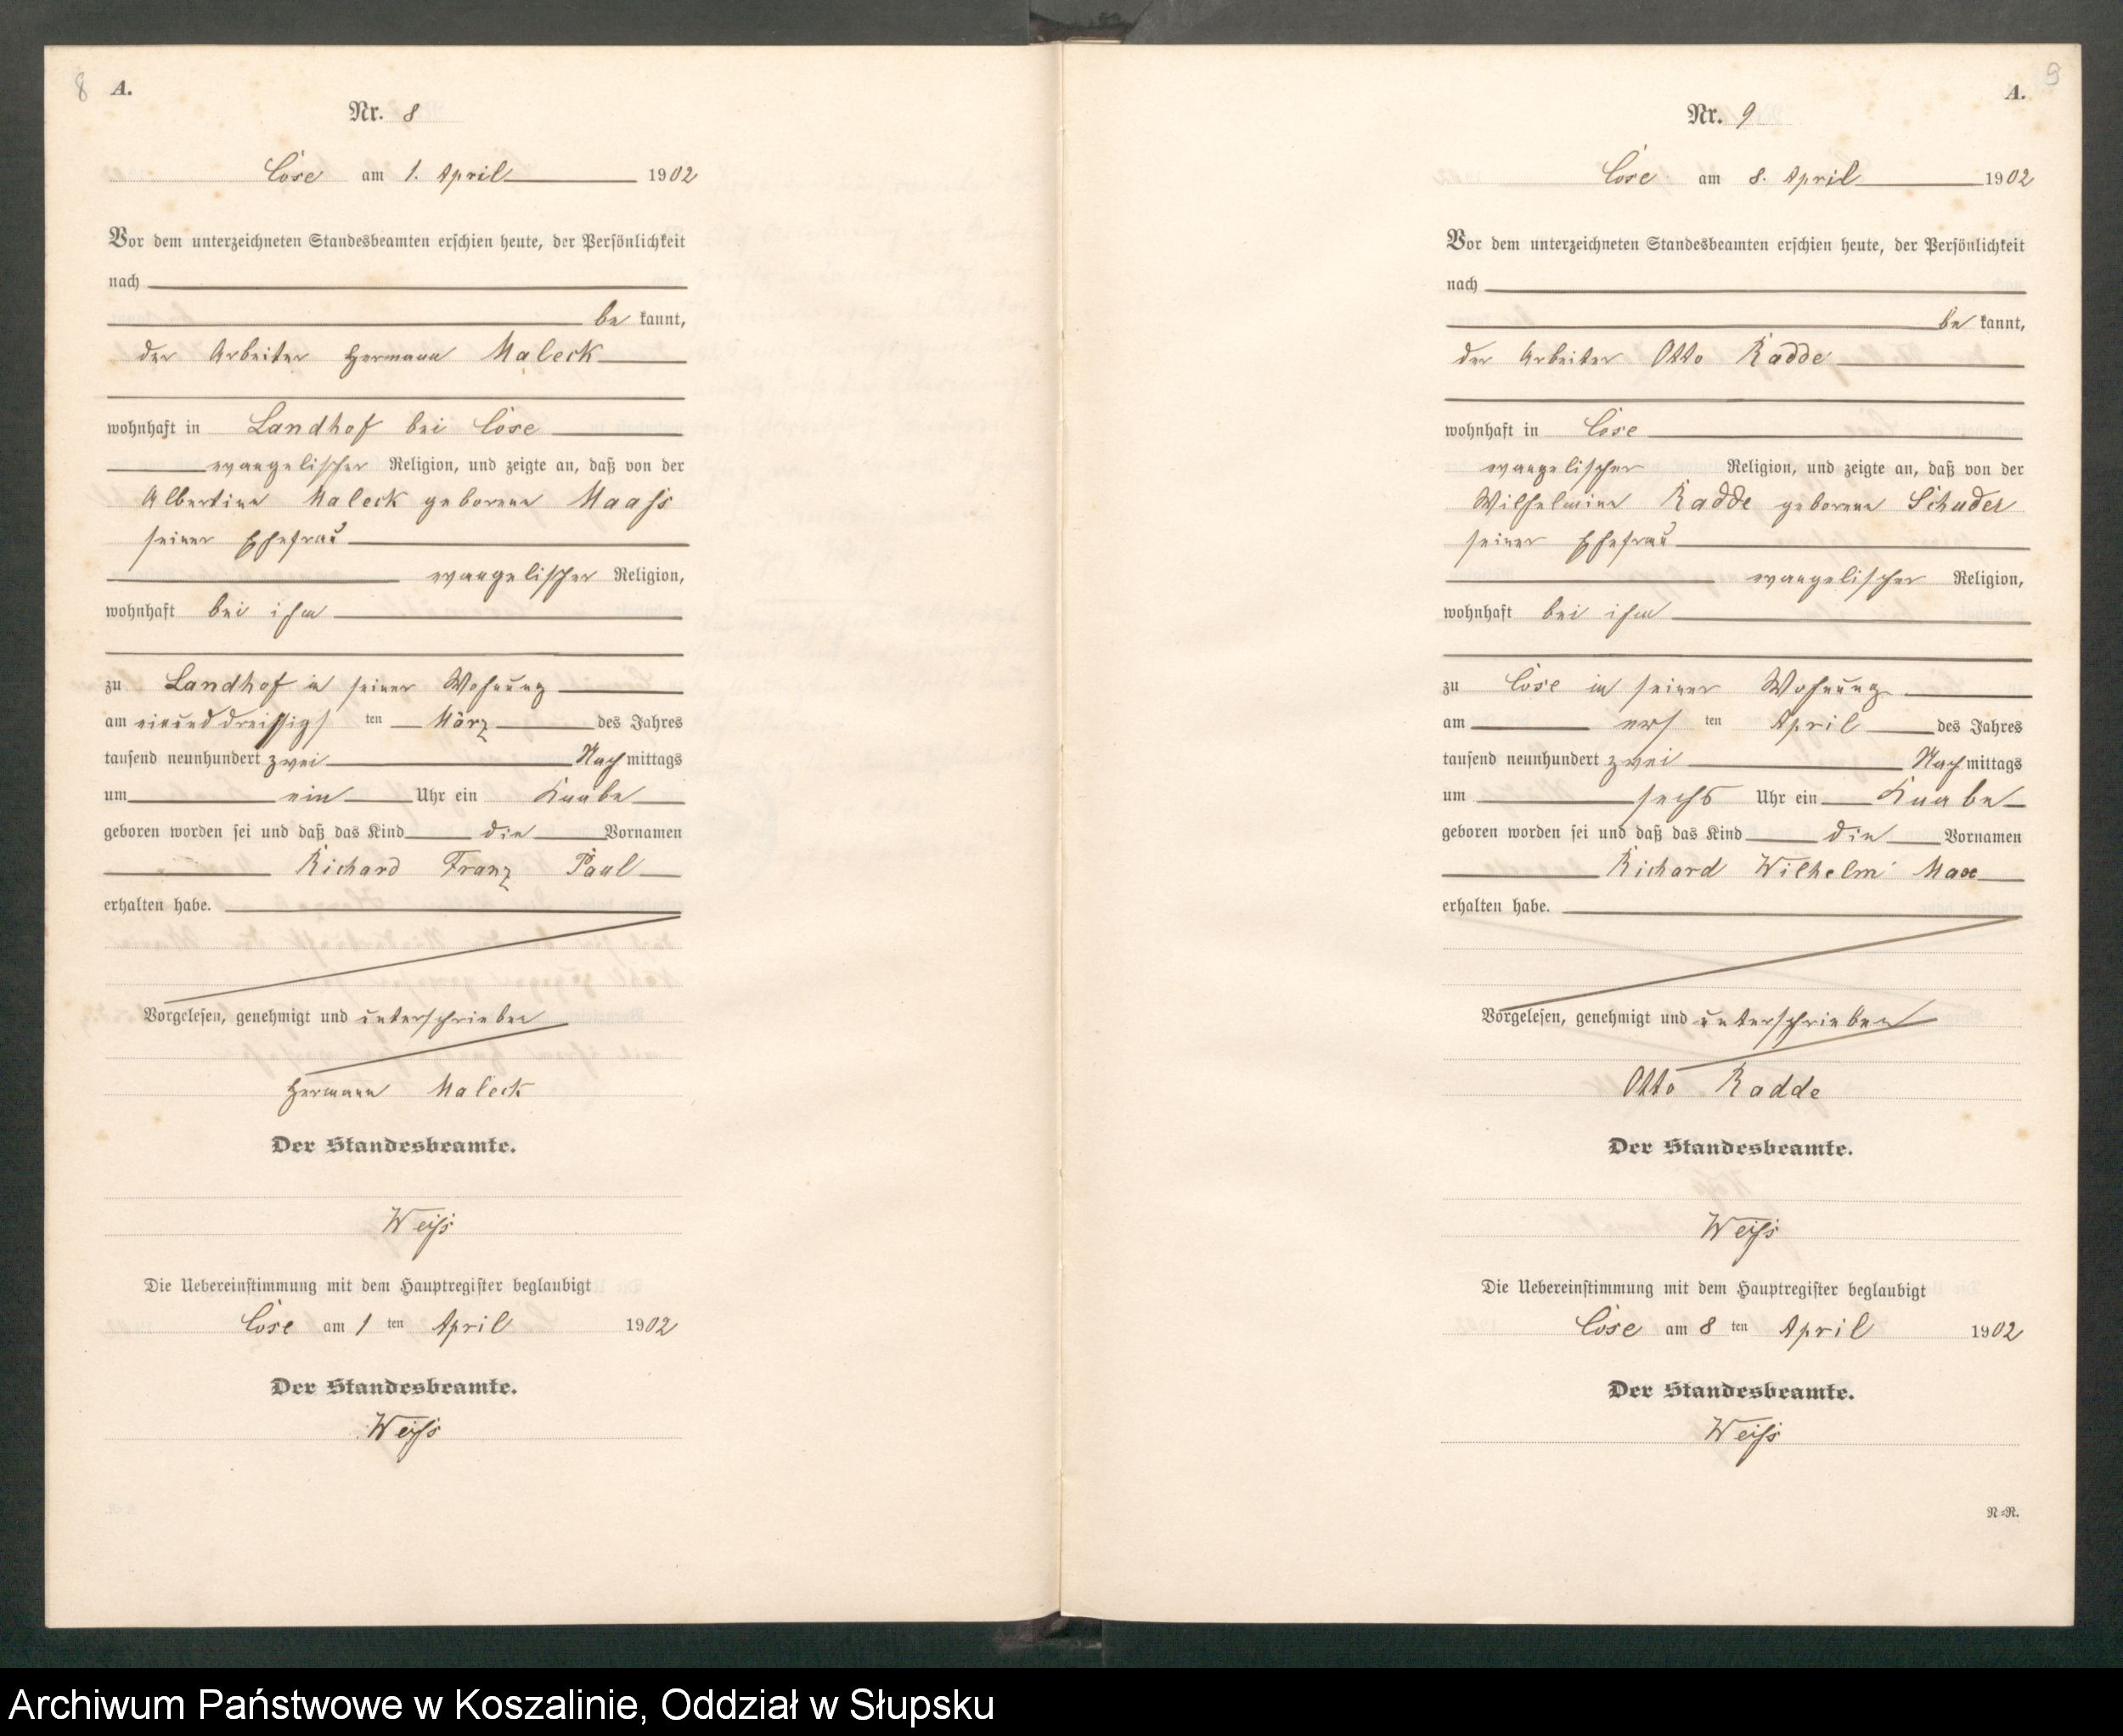 8 A.
Nr. 8
Cöse am 1. April 1902
Vor dem unterzeichneten Standesbeamten erschien heute, der Persönlichkeit
nach
be kannt,
der Arbeiter Hermann Maleck
wohnhaft in Landhof bei Cöse
evangelischer Religion, und zeigte an, daß von der
Albertine Maleck geborene Maass
seiner Ehefrau
evangelischer Religion,
wohnhaft bei ihm
zu Landhof in seiner Wohnung
am einunddreissigs ten März des Jahres
tausend neunhundert zwei Nach mittags
um ein Uhr ein Knabe
geboren worden sei und daß das Kind die Vornamen
Richard Franz Paul
erhalten habe.
Vorgelesen, genehmigt und unterschrieben
Hermann Maleck
Der Standesbeamte.
Weiss
Die Uebereinstimmung mit dem Hauptregister beglaubigt
Cöse am 1 ten April 1902
Der Standesbeamte.
Weiss
9
A.
Nr. 9
Cöse am 8. April 1902
Vor dem unterzeichneten Standesbeamten erschien heute, der Persönlichkeit
nach
be kannt,
der Arbeiter Otto Radde
wohnhaft in Cöse
evangelischer Religion, und zeigte an, daß von der
Wilhelmine Radde geborene Schuder
seiner Ehefrau
evangelischer Religion,
wohnhaft bei ihm
zu Cöse in seiner Wohnung
am ers ten April des Jahres
tausend neunhundert zwei Nach mittags
um sechs Uhr ein Knabe
geboren worden sei und daß das Kind die Vornamen
Richard Wilhelm Max
erhalten habe.
Vorgelesen, genehmigt und unterschrieben
Otto Radde
Der Standesbeamte.
Weiss
Die Uebereinstimmung mit dem Hauptregister beglaubigt
Cöse am 8 ten April 1902
Der Standesbeamte.
Weiss
N=R.
Archiwum Państwowe w Koszalinie, Oddział w Słupsku